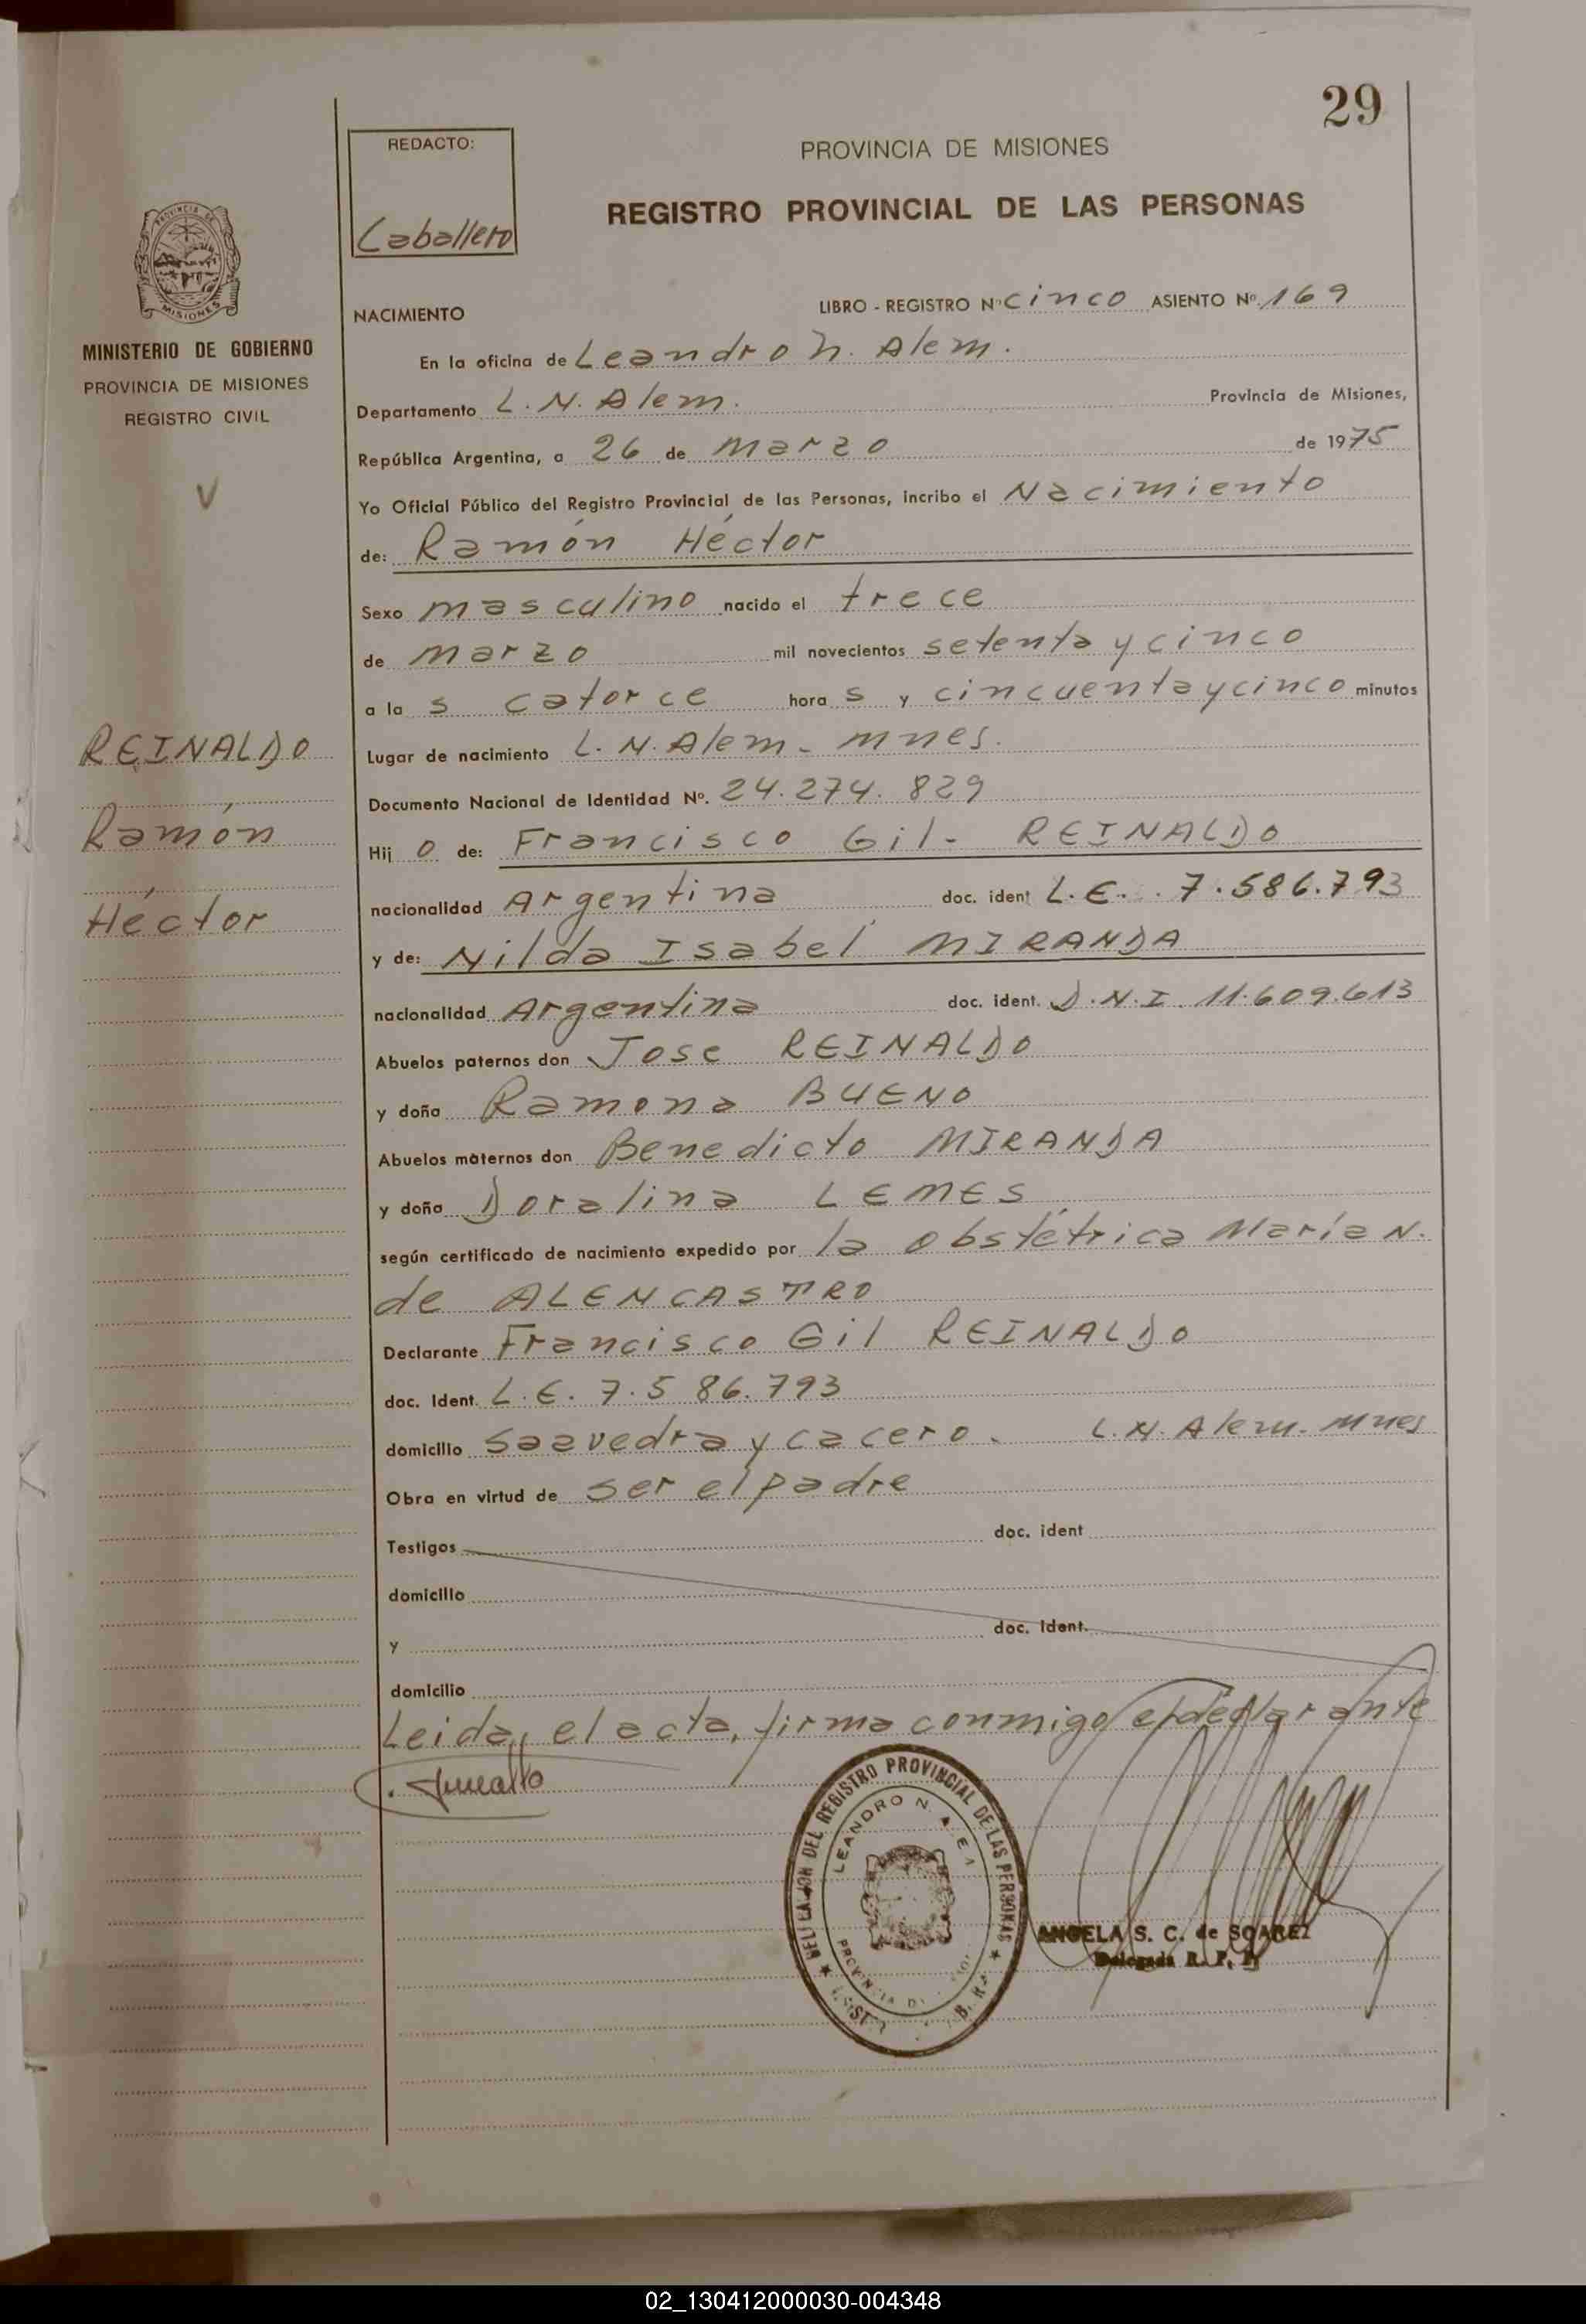 29
REDACTO:
Caballero
PROVINCIA DE MISIONES
REGISTRO PROVINCIAL DE LAS PERSONAS
PROVINCIA DE
MISIONES
MINISTERIO DE GOBIERNO
PROVINCIA DE MISIONES
REGISTRO CIVIL
NACIMIENTO LIBRO - REGISTRO Nº cinco ASIENTO Nº 169
En la oficina de Leandro N. Alem.
Departamento L. N. Alem. Provincia de Misiones,
República Argentina, a 26 de Marzo de 1975
Yo Oficial Público del Registro Provincial de las Personas, incribo el Nacimiento
de: Ramón Héctor
Sexo masculino nacido el trece
de Marzo mil novecientos setenta y cinco
a la s catorce hora s y cincuenta y cinco minutos
Lugar de nacimiento L. N. Alem - Mnes.
Documento Nacional de Identidad Nº. 24.274.829
Hij o de: Francisco Gil - REINALDO
nacionalidad Argentina doc. ident L.E. 7.586.793
y de: Nilda Isabel MIRANDA
nacionalidad Argentina doc. ident. D.N.I. 11.609.613
Abuelos paternos don Jose REINALDO
y doña Ramona BUENO
Abuelos maternos don Benedicto MIRANDA
y doña Doralina LEMES
según certificado de nacimiento expedido por la obstétrica María N.
de ALENCASTRO
Declarante Francisco Gil REINALDO
doc. Ident. L.E. 7.586.793
domicilio Saavedra y cacero. L. N. Alem. Mnes
Obra en virtud de ser el padre
Testigos doc. ident
domicilio
y doc. Ident.
domicilio
Leida, el acta, firma conmigo el declarante
REINALDO
Ramón
Héctor
DEL REGISTRO PROVINCIAL DE LAS PERSONAS
LEANDRO N.
ANGELA S. C. de SOAREZ
Delegada R. P. P.
02_130412000030-004348